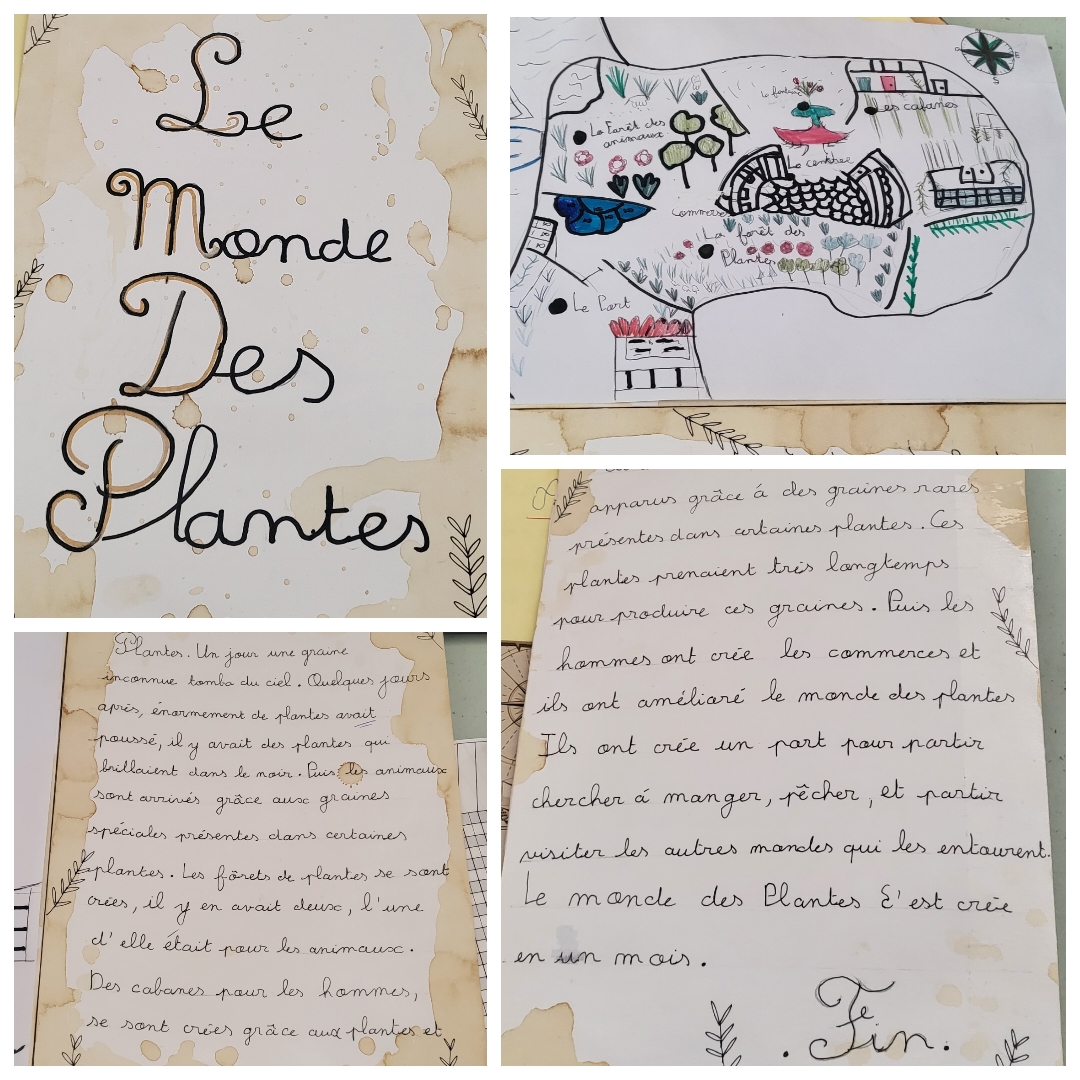 Le
Monde
Des
Plantes
S
La Forêt des
animaux
Les cabanes
Le centre
Commerce
La forêt des
Plantes
Le Port
Plantes. Un jour une graine
inconnue tomba du ciel. Quelques jours
après, énormement de plantes avait
poussé, il y avait des plantes qui
brillaient dans le noir. Puis les animaux
sont arrivés grâce aux graines
spéciales présentes dans certaines
plantes. Les fôrets de plantes se sont
crées, il y en avait deux, l'une
d'elle était pour les animaux.
Des cabanes pour les hommes,
se sont crées grâce aux plantes et
apparus grâce á des graines rares
présentes dans certaines plantes. Ces
plantes prenaient très longtemps
pour produire ces graines. Puis les
hommes ont crée les commerces et
ils ont amélioré le monde des plantes
Ils ont crée un port pour partir
chercher á manger, pêcher, et partir
visiter les autres mondes qui les entourent.
Le monde des Plantes s'est crée
en un mois.
Fin.